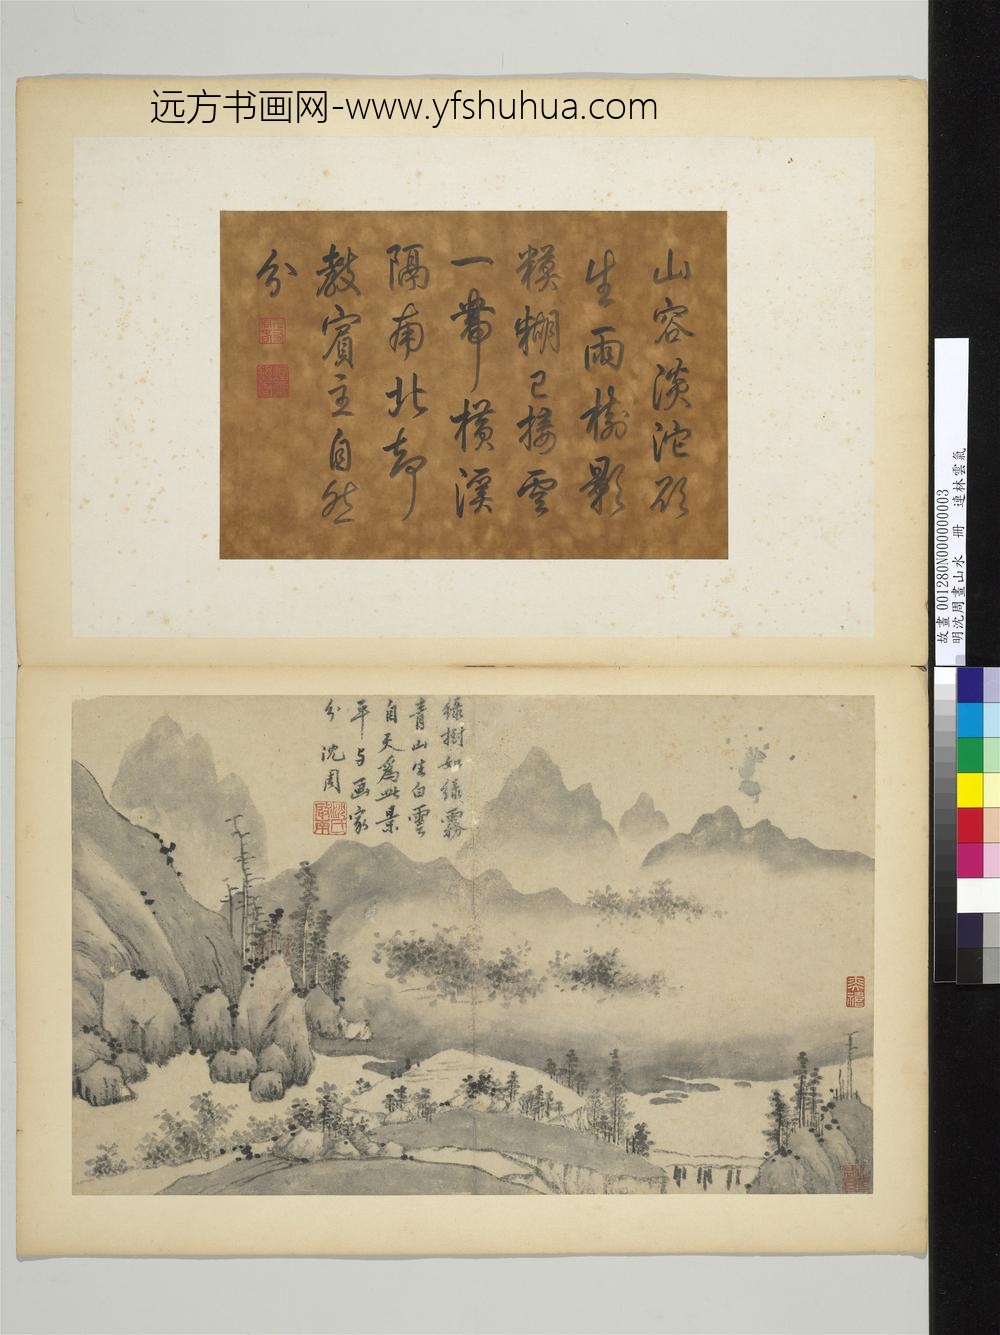 远方书画网-www.yfshuhua.com
山容淡沱欲
生雨樹影
糢糊已接雲
一帶橫溪
隔南北却
教賓主自然
分
綠樹如綠霧
青山生白雲
自天為此景
平与画家
分 沈周
故畫 001280N000000003
明沈周畫山水 冊 連林雲氣